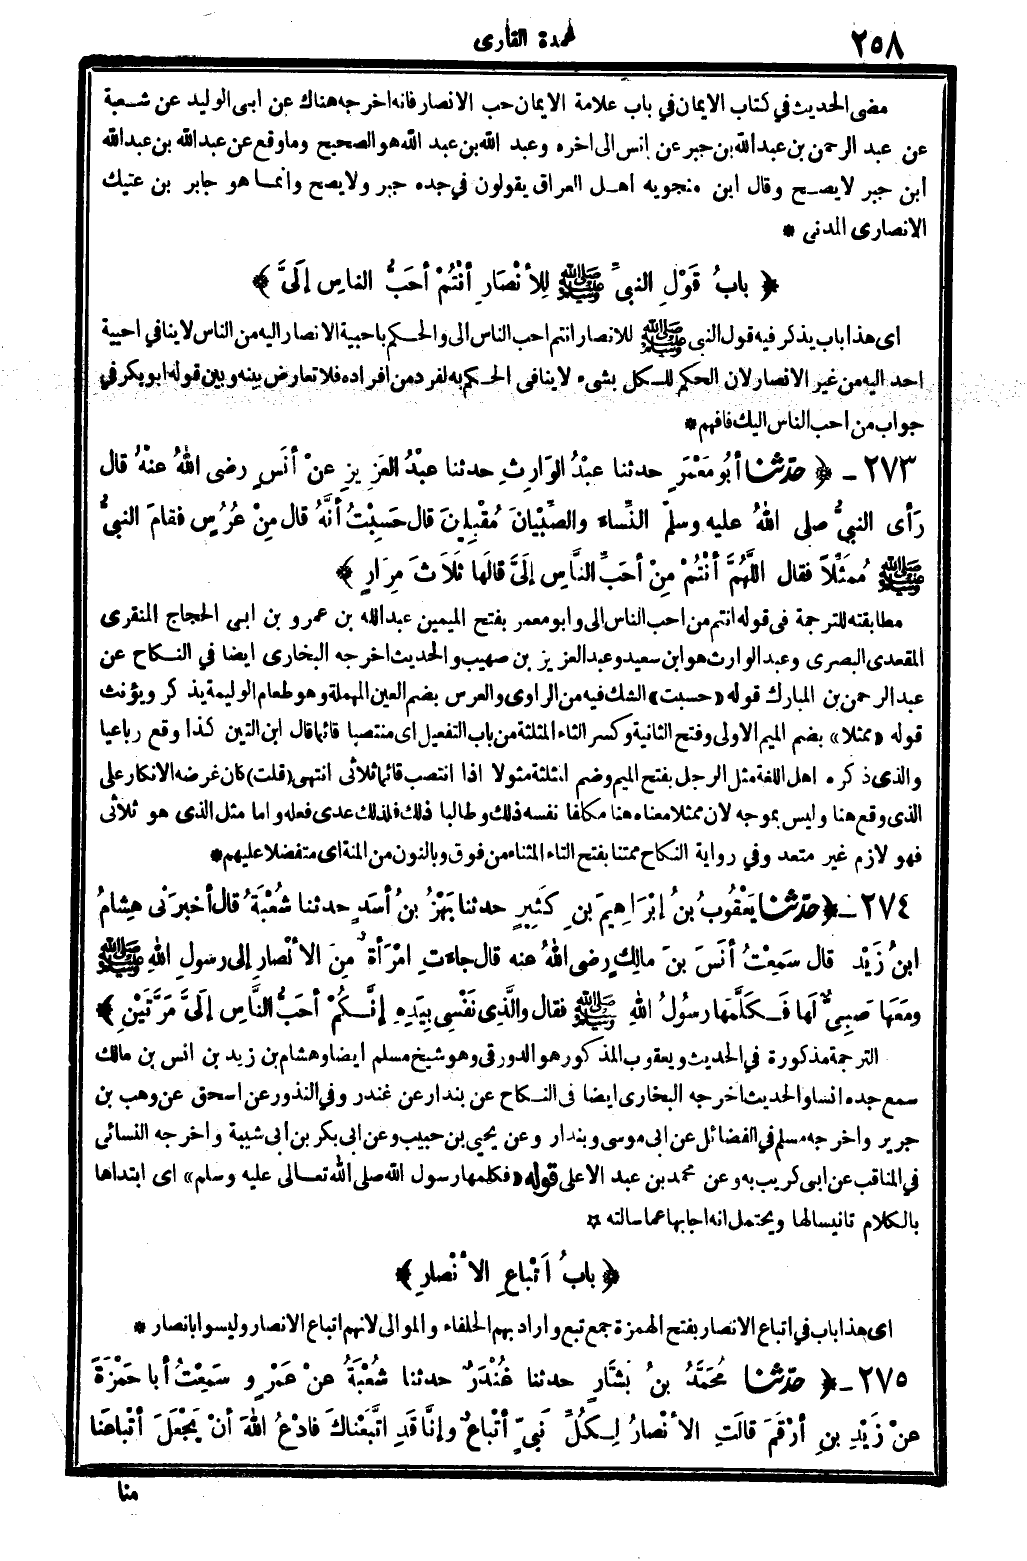 ٢٥٨
عمدة القارى
مضى الحديث في كتاب الايمان في باب علامة الايمان حب الانصار فانه اخرجه هناك عن ابى الوليد عن شعبة
عن عبد الرحمن بن عبد الله بن جبر عن انس الى اخره وعبد الله بن عبد الله هو الصحيح وما وقع عن عبد الله بن عبد الله
ابن جبر لا يصح وقال ابن منجويه اهل العراق يقولون في جده جبر ولا يصح وانما هو جابر بن عتيك
الانصارى المدنى *
﴿ بابُ قَوْلِ النبىِّ ﷺ لِلأنْصَارِ أنْتُمْ أحَبُّ الناسِ إلَىَّ ﴾
اى هذا باب يذكر فيه قول النبى ﷺ للانصار انتم احب الناس الى والحكم باحبية الانصار اليه من الناس لا ينافي احبية
احد اليه من غير الانصار لان الحكم للكل بشىء لا ينافى الحكم به لفرد من افراده فلا تعارض بينه وبين قوله ابو بكر في
جواب من احب الناس اليك فافهم *
٢٧٣ ـ ﴿ حدّثنا أبُو مَعْمَرٍ حدثنا عبْدُ الوَارِثِ حدثنا عبْدُ العَزِيزِ عنْ أنَسٍ رضى اللهُ عنهُ قال
رَأى النبىُّ صلى اللهُ عليه وسلم النِّساءَ والصِّبْيَانَ مُقْبِلِينَ قال حَسِبْتُ أنَّهُ قال مِنْ عُرُسٍ فقامَ النبىُّ
ﷺ مُمَثِّلاً فقال اللَّهُمَّ أنْتُمْ مِنْ أحَبِّ النَّاسِ إلَىَّ قالَها ثَلاَثَ مِرَارٍ ﴾
مطابقته للترجمة فى قوله انتم من احب الناس الى وابو معمر بفتح الميمين عبدالله بن عمرو بن ابى الحجاج المنقرى
المقعدى البصرى وعبد الوارث هو ابن سعيد وعبد العزيز بن صهيب والحديث اخرجه البخارى ايضا في النكاح عن
عبد الرحمن بن المبارك قوله «حسبت» الشك فيه من الراوى والعرس بضم العين المهملة وهو طعام الوليمة يذكر ويؤنث
قوله «ممثلا» بضم الميم الاولى وفتح الثانية وكسر الثاء المثلثة من باب التفعيل اى منتصبا قائما قال ابن التين كذا وقع رباعيا
والذى ذكره اهل اللغة مثل الرجل بفتح الميم وضم المثلثة مثولا اذا انتصب قائما ثلاثى انتهى (قلت) كان غرضه الانكار على
الذى وقع هنا وليس بموجه لان ممثلا معناه هنا مكلفا نفسه ذلك وطالبا ذلك فلذلك عدى فعله واما مثل الذى هو ثلاثى
فهو لازم غير متعد وفي رواية النكاح ممتنا بفتح التاء المثناة من فوق وبالنون من المنة اى متفضلا عليهم *
٢٧٤ ـ ﴿ حدّثنا يَعْقُوبُ بنُ إبْرَاهِيمَ بنِ كَثِيرٍ حدثنا بَهْزُ بنُ أسَدٍ حدثنا شُعْبَةُ قال أخبرَنى هِشامُ
ابنُ زَيْدٍ قال سَمِعْتُ أنَسَ بنَ مالِكٍ رضى اللهُ عنه قال جاءَتِ امْرَأةٌ مِنَ الأنْصارِ إلى رسولِ اللهِ ﷺ
ومَعَها صَبِىٌّ لَها فَكَلَّمَها رسُولُ اللهِ ﷺ فقال والَّذِى نَفْسِى بِيَدِهِ إنَّكُمْ أحَبُّ النَّاسِ إلَىَّ مَرَّتَيْنِ ﴾
الترجمة مذكورة في الحديث ويعقوب المذكور هو الدورقى وهو شيخ مسلم ايضا وهشام بن زيد بن انس بن مالك
سمع جده انسا والحديث اخرجه البخارى ايضا فى النكاح عن بندار عن غندر وفي النذور عن اسحق عن وهب بن
جرير واخرجه مسلم في الفضائل عن ابى موسى وبندار وعن يحيى بن حبيب وعن ابى بكر بن أبى شيبة واخرجه النسائى
في المناقب عن ابى كريب به وعن محمد بن عبد الاعلى قوله «فكلمها رسول الله صلى الله تعالى عليه وسلم» اى ابتداها
بالكلام تانيسا لها ويحتمل انه اجابها عما سالته *
﴿ بابُ أتْباعِ الأنْصارِ ﴾
اى هذا باب في اتباع الانصار بفتح الهمزة جمع تبع واراد بهم الحلفاء والموالى لانهم اتباع الانصار وليسوا بانصار *
٢٧٥ ـ ﴿ حدّثنا مُحَمَّدُ بنُ بَشَّارٍ حدثنا غُنْدَرٌ حدثنا شُعْبَةُ عنْ عَمْرٍو سَمِعْتُ أبا حَمْزَةَ
عنْ زَيْدِ بنِ أرْقَمَ قالَتِ الأنْصارُ لِكُلِّ نَبِىٍّ أتْباعٌ وإنَّا قَدِ اتَّبَعْناكَ فادْعُ اللهَ أنْ يَجْعَلَ أتْباعَنا
منا